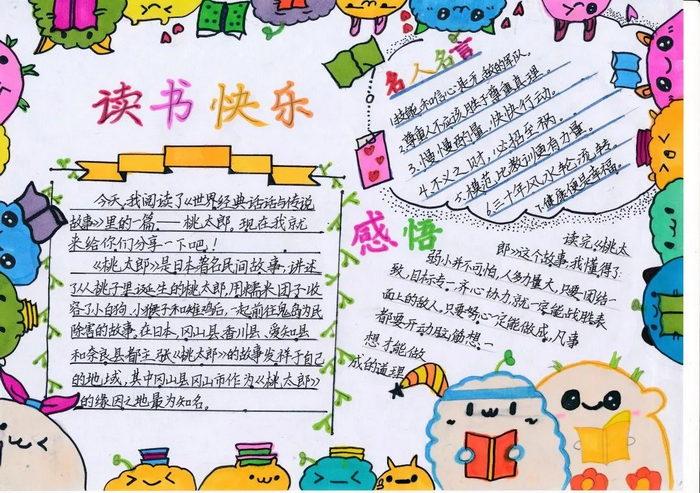 读书快乐
今天,我阅读了《世界经典话话与传说
故事》里的一篇——桃太郎。现在我就
来给你们分享一下吧!
《桃太郎》是日本著名民间故事,讲述
了从桃子里诞生的桃太郎,用糯米团子收
容了小白狗、小猴子和雉鸡后,一起前往鬼岛为民
除害的故事。在日本,冈山县、香川县、爱知县
和奈良县都主张《桃太郎》的故事发祥于自己
的地域,其中冈山县冈山市作为《桃太郎》
的缘因之地最为知名。
名人名言
1.技能和信心是无敌的军队。
2.尊重人不应该胜于尊重真理。
3.慢慢酌量,快快行动。
4.不义之财,必招至祸。
5.模范比教训更有力量。
6.三十年风水轮流转。
7.健康便是幸福。
感悟
读完《桃太
郎》这个故事,我懂得了
弱小并不可怕,人多力量大,只要团结一
致,目标专一,齐心协力,就一定能战胜表
面上的敌人,只要心一定能做成,凡事
都要开动脑筋想一
想才能做
成的道理